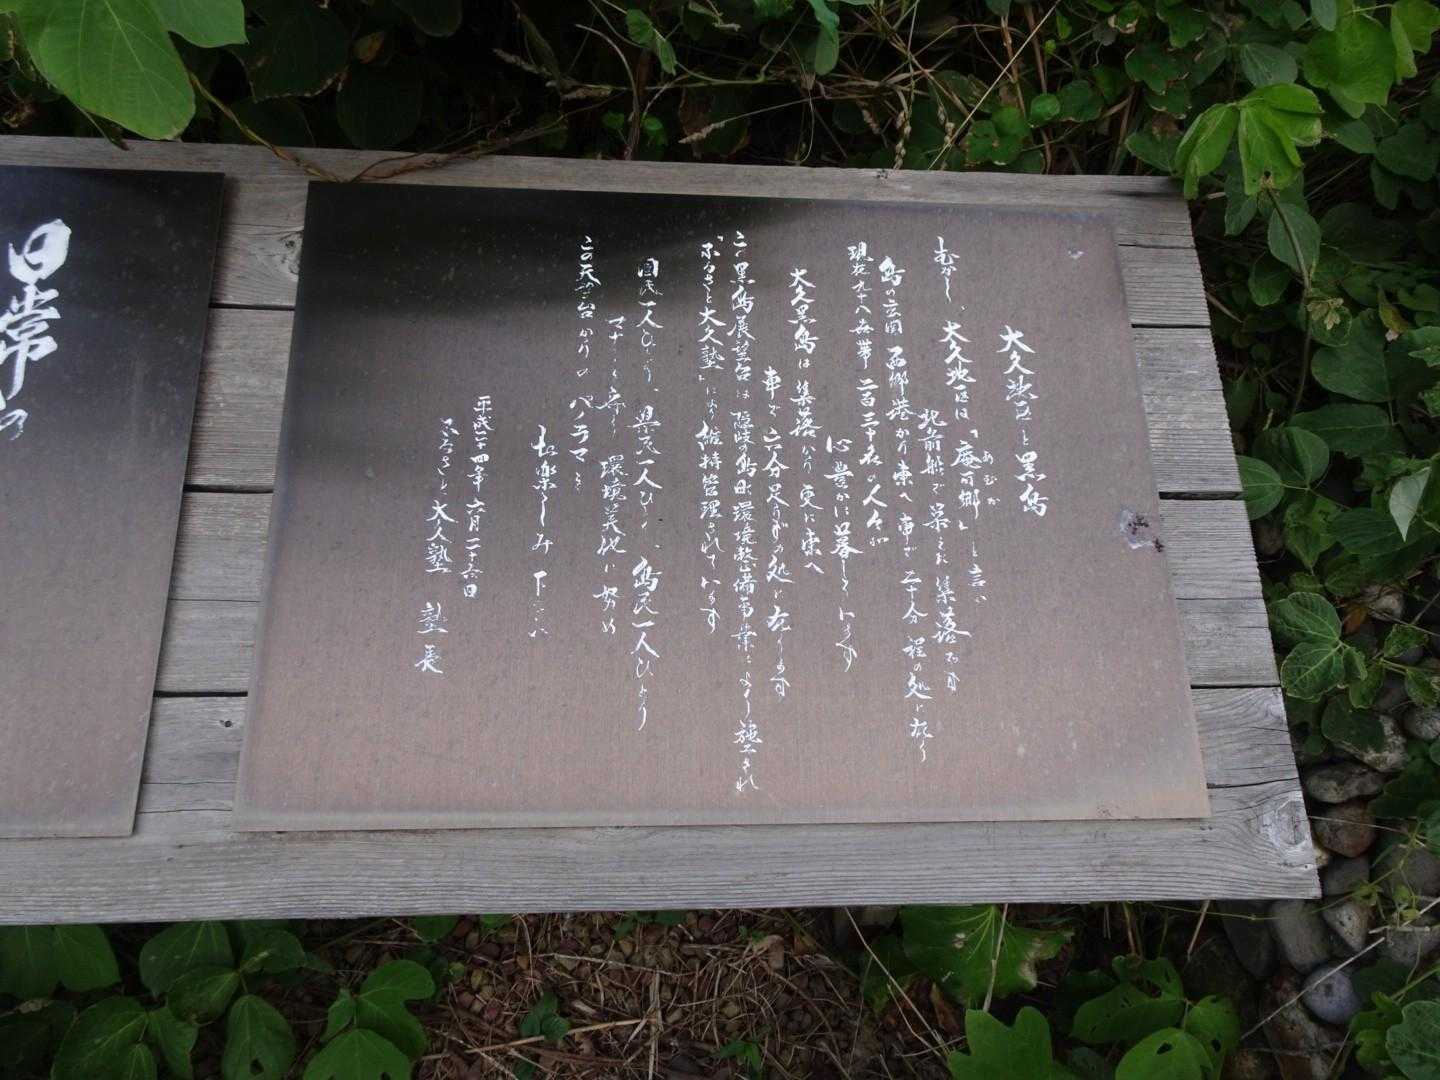 大久地区と黒島
むかし、大久地区は「庵可郷」と言い
あむか
北前船で栄えた集落です
島の玄関西郷港から東へ車で二十分程の処に在り
現在九十八世帯二百三十名の人々が
心豊かに暮しています
大久黒島は集落から更に東へ
車で六分足らずの処に在ります
この黒島展望台は隠岐の島町環境整備事業により施工され
「ふるさと大久塾」により維持管理されています
国民一人ひとり、県民一人ひとり、島民一人ひとり
マナーを守り環境美化に努め
この天望台からのパノラマを
お楽しみ下さい
平成二十四年六月二十六日
ふるさと大久塾 塾長
日常の